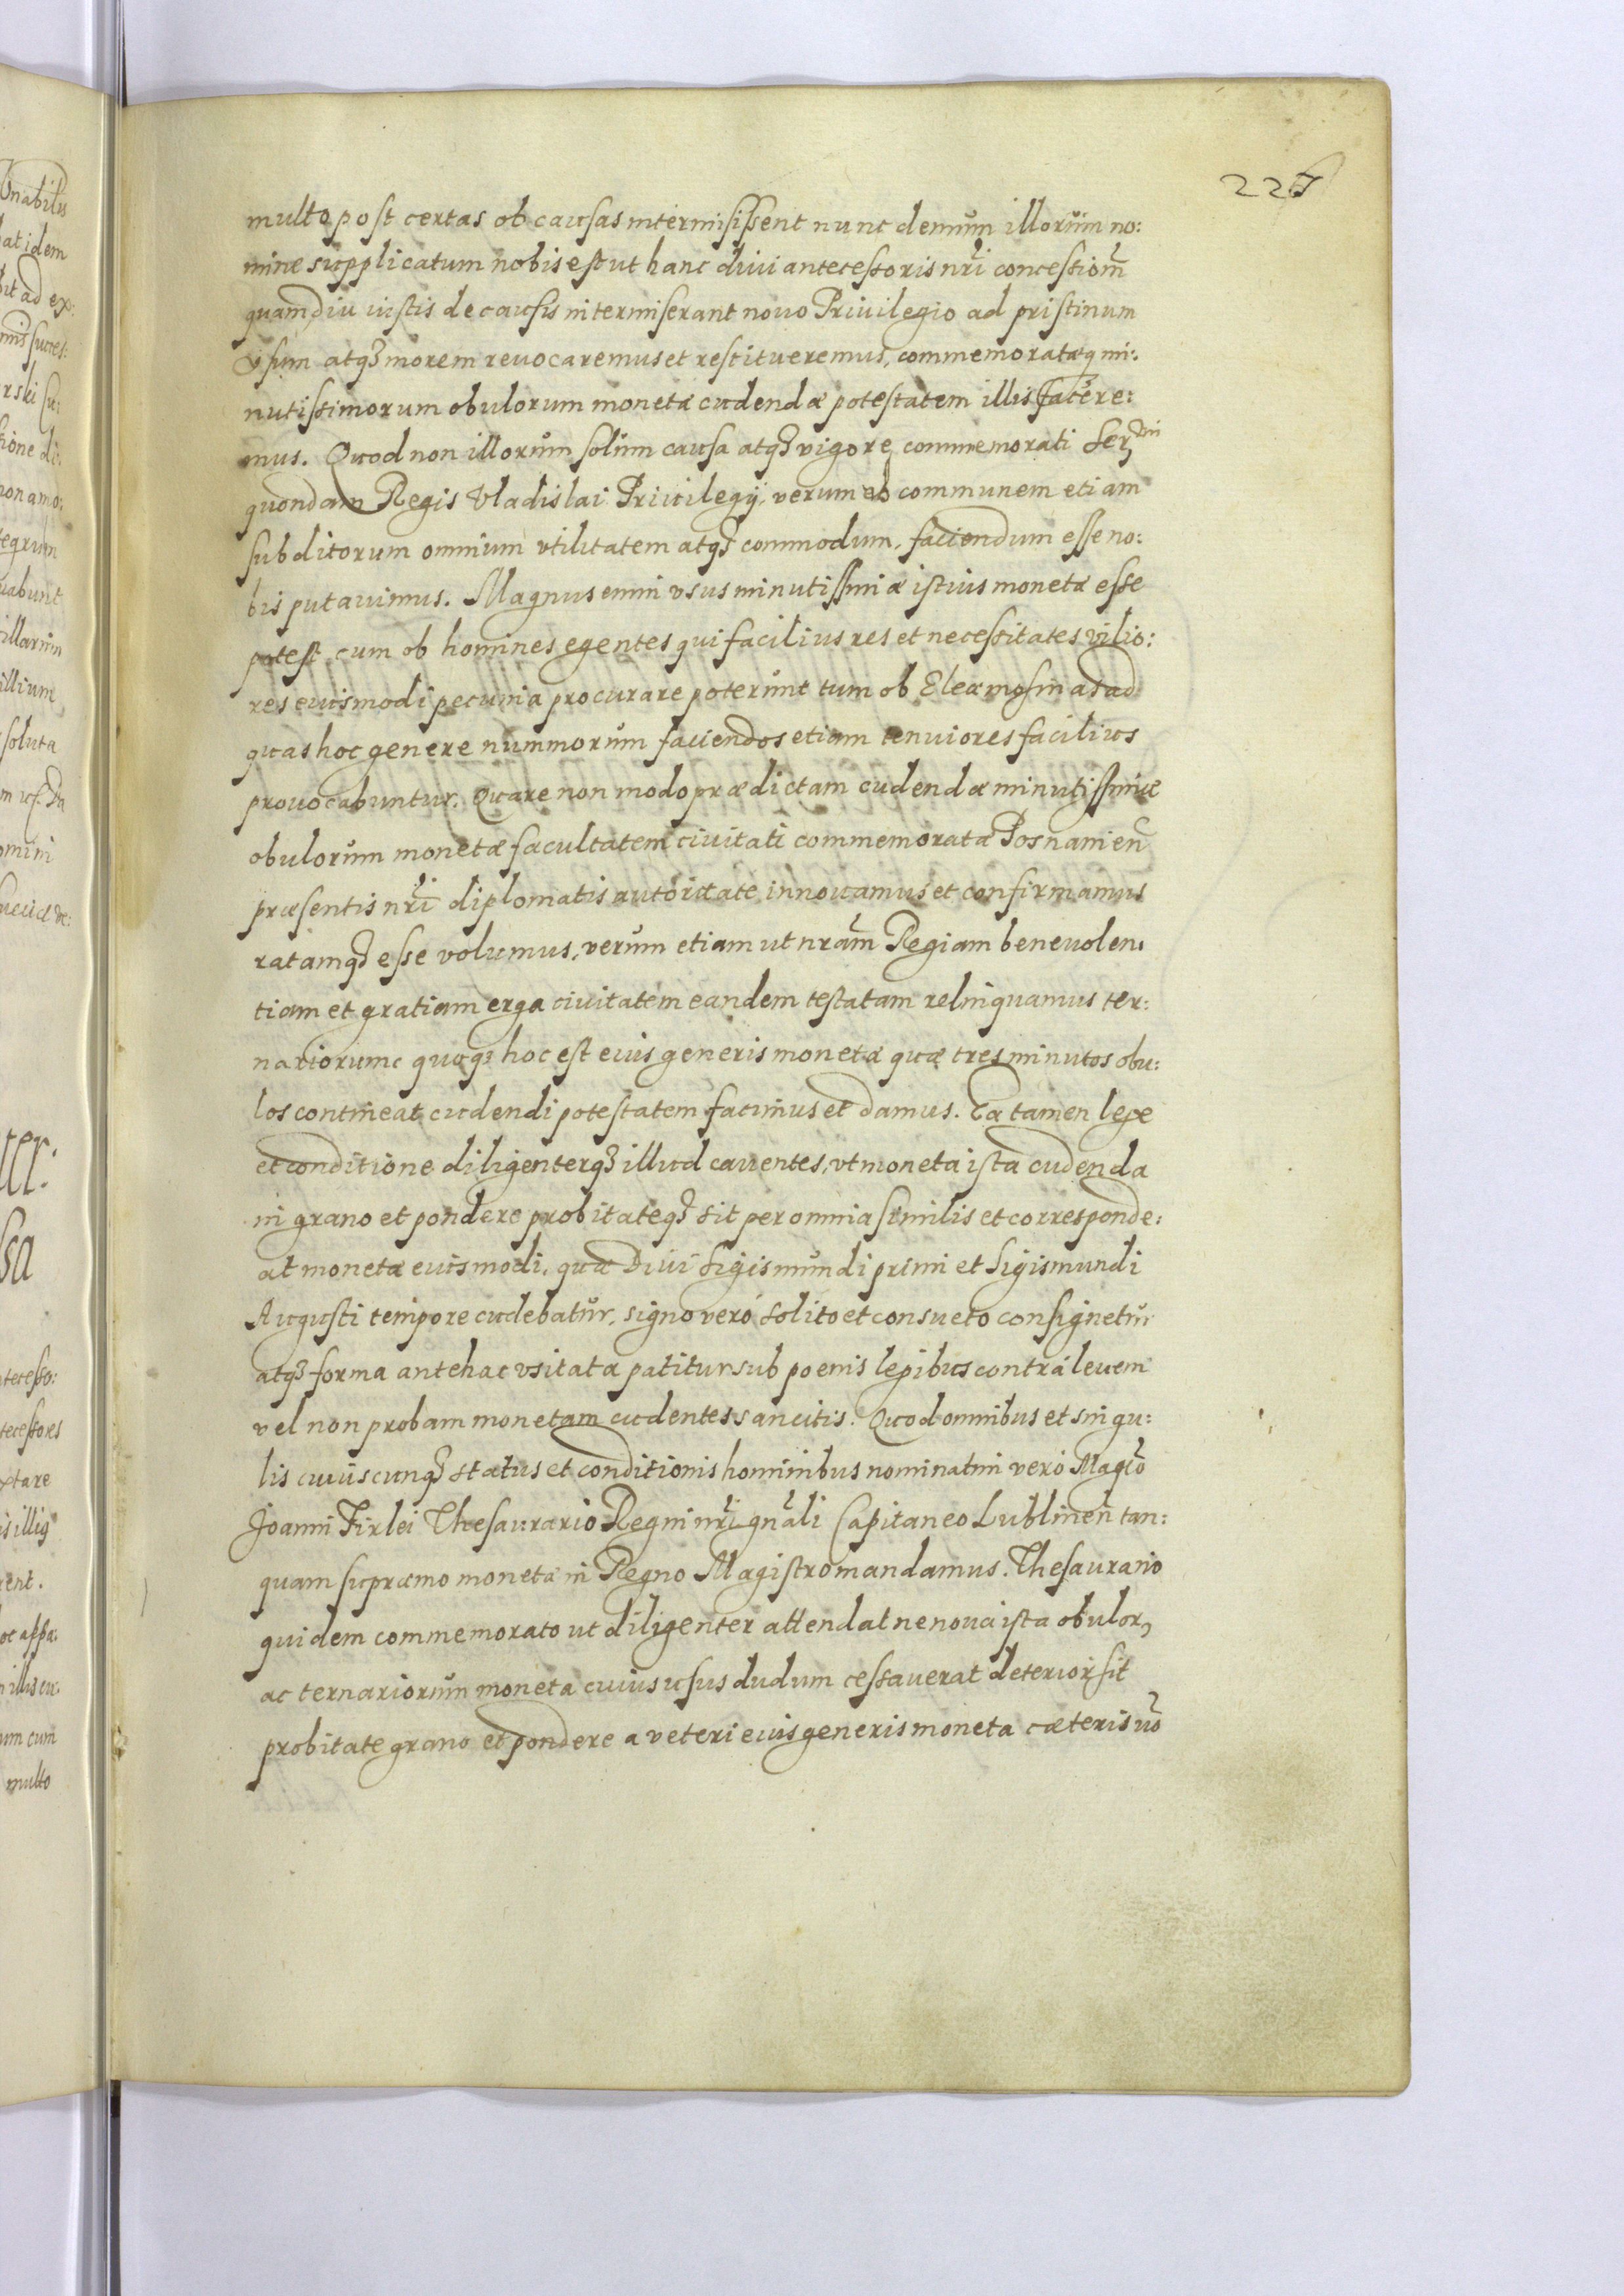 multo post certas ob causas intermisissent nunc demum illorum no:
mine supplicatum nobis est ut hanc diui antecessoris nri concessiom
quamdiu iustis de causis intermiserant nouo Priuilegio ad pristinum
vsum atq3 morem reuocaremus et restitueremus, commemoratæq mi:
nutissimorum obulorum monetæ cudendæ potestatem illis facere:
mus. Quod non illorum solum causa atq3 vigore commemorati Ser
quondam Regis Vladislai Priuilegij, verum ob communem etiam
subditorum omnium vtilitatem atq3 commodum, faciendum esse no:
bis putauimus. Magnus enim vsus minutissimæ istius monetæ esse
potest cum ob homines egentes qui facilius res et necessitates vilio:
res eiusmodi pecunia procurare poterunt tum ob Eleæmosinas ad
quas hoc genere nummorum faciendos etiam tenuiores facilius
prouocabuntur. Quare non modo prædictam cudendæ minutissimæ
obulorum monetæ facultatem ciuitati commemoratæ Posnanien
præsentis nri diplomatis autoritate innouamus et confirmamus
ratamq3 esse volumus, verum etiam ut nram Regiam beneuolen:
tiam et gratiam erga ciuitatem eandem testatam relinquamus ter:
nariorum quoq3 hoc est eius generis monetæ quæ tres minutos obu:
los contineat cudendi potestatem facimus et damus. Ea tamen lege
et conditione diligenterq3 illud cauentes, vt moneta ista cudenda
in grano et pondere probitateq3 sit per omnia similis et corresponde:
at monetæ eiusmodi, quæ Diui Sigismundi primi et Sigismundi
Augusti tempore cudebatur, signo vero solito et consueto consignetur
atq3 forma antehac vsitata patitur sub poenis legibus contra leuem
vel non probam monetam cudentes sancitis. Quod omnibus et singu:
lis cuiuscunq3 status et conditionis hominibus nominatim vero Magco
Joanni Firlei Thesaurario Regni nri gnali Capitaneo Lublinen tan:
quam supræmo monetæ in Regno Magistro mandamus. Thesaurario
quidem commemorato ut diligenter attendat ne noua ista obulor
ac ternariorum moneta cuius usus dudum cessauerat deterior sit
probitate grano et pondere a veteri eius generis moneta cæteris vo